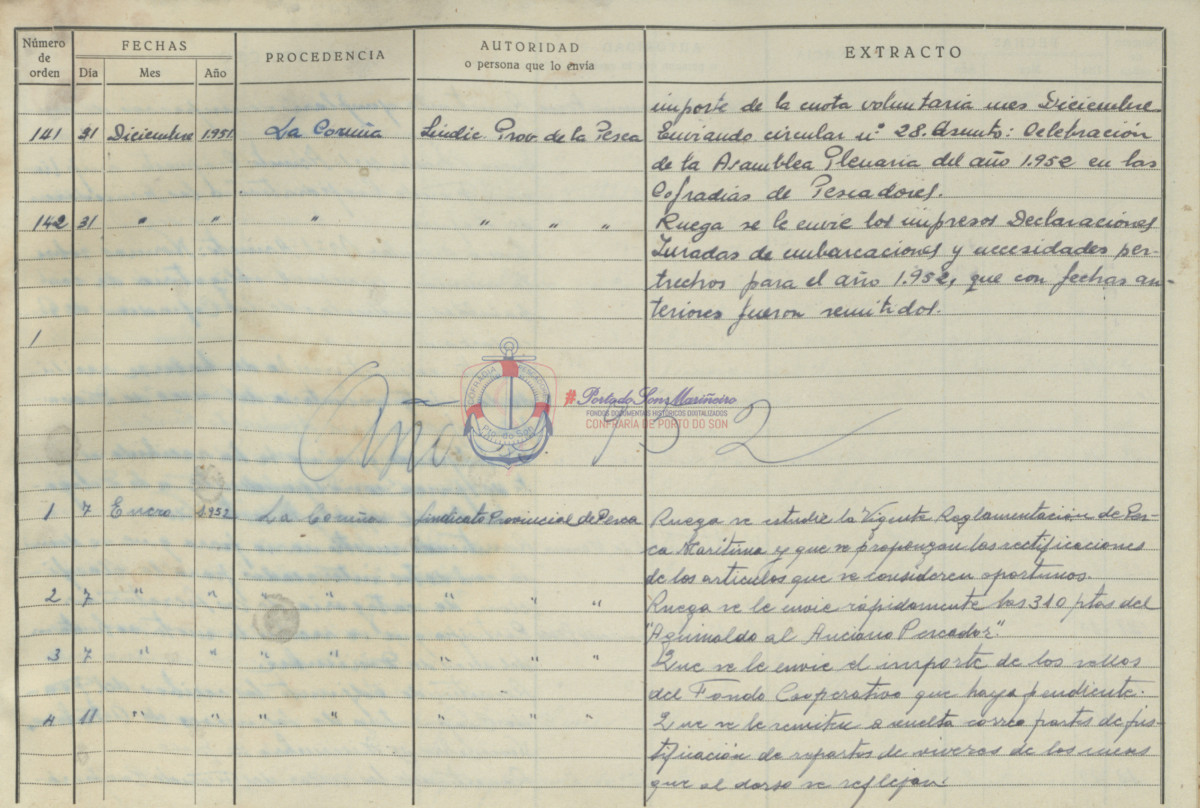 Número de orden
FECHAS
Día
Mes
Año
PROCEDENCIA
AUTORIDAD
o persona que lo envía
EXTRACTO
importe de la cuota voluntaria mes Diciembre
141 31 Diciembre 1.951 La Coruña Sindic. Prov. de la Pesca Enviando circular nº 28. Asunto: Celebración
de la Asamblea Plenaria del año 1.952 en las
Cofradias de Pescadores.
142 31 " " " " " " Ruega se le envie los impresos Declaraciones
Juradas de embarcaciones y necesidades per-
trechos para el año 1.952, que con fechas an-
teriores fueron remitidos.
1
Año 1952
COFRADIA PESCADORES
Pto. do Son
#PortodoSonMariñeiro
FONDOS DOCUMENTAIS HISTÓRICOS DIXITALIZADOS
CONFRARÍA DE PORTO DO SON
1 7 Enero 1.952 La Coruña Sindicato Provincial de Pesca Ruega se estudie la Vigente Reglamentación de Pes-
ca Maritima y que se propongan las rectificaciones
de los articulos que se consideren oportunos.
2 7 " " " " " " " Ruega se le envie rápidamente las 310 ptas del
"Aguinaldo al Anciano Pescador".
3 7 " " " " " " " Que se le envie el importe de los sellos
del Fondo Cooperativo que haya pendiente.
4 11 " " " " " " " Que se le remita a vuelta correo partes de jus-
tificación de repartos de viveres de los meses
que al dorso se reflejan.